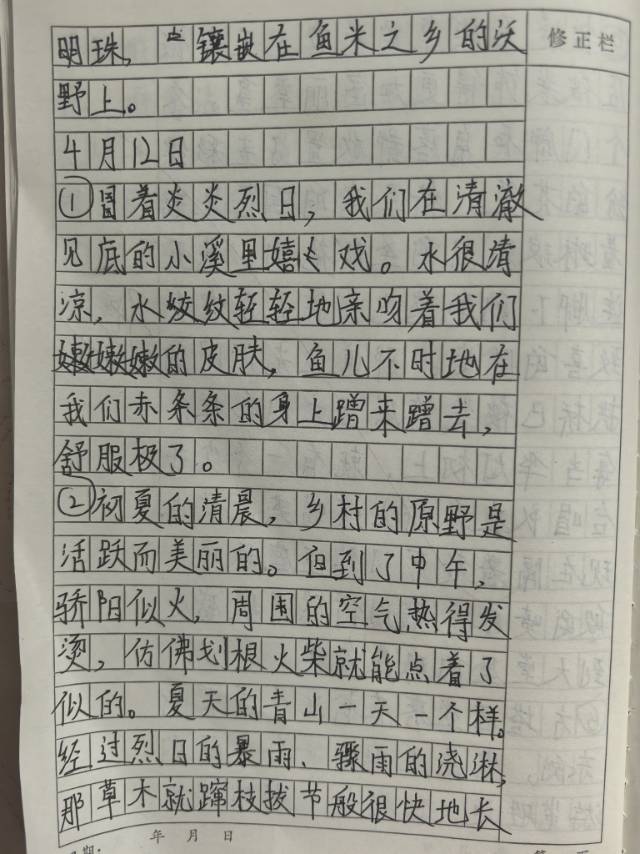 明珠，镶嵌在鱼米之乡的沃
修正栏
野上。
4月12日
①冒着炎炎烈日，我们在清澈
见底的小溪里嬉戏。水很清
凉，水皎纹轻轻地亲吻着我们
嫩嫩的皮肤，鱼儿不时地在
我们赤条条的身上蹭来蹭去，
舒服极了。
②初夏的清晨，乡村的原野是
活跃而美丽的。但到了中午，
骄阳似火，周围的空气热得发
烫，仿佛划根火柴就能点着了
似的。夏天的青山一天一个样。
经过烈日的暴雨、骤雨的浇淋，
那草木就蹿枝拔节般很快地长
年 月 日